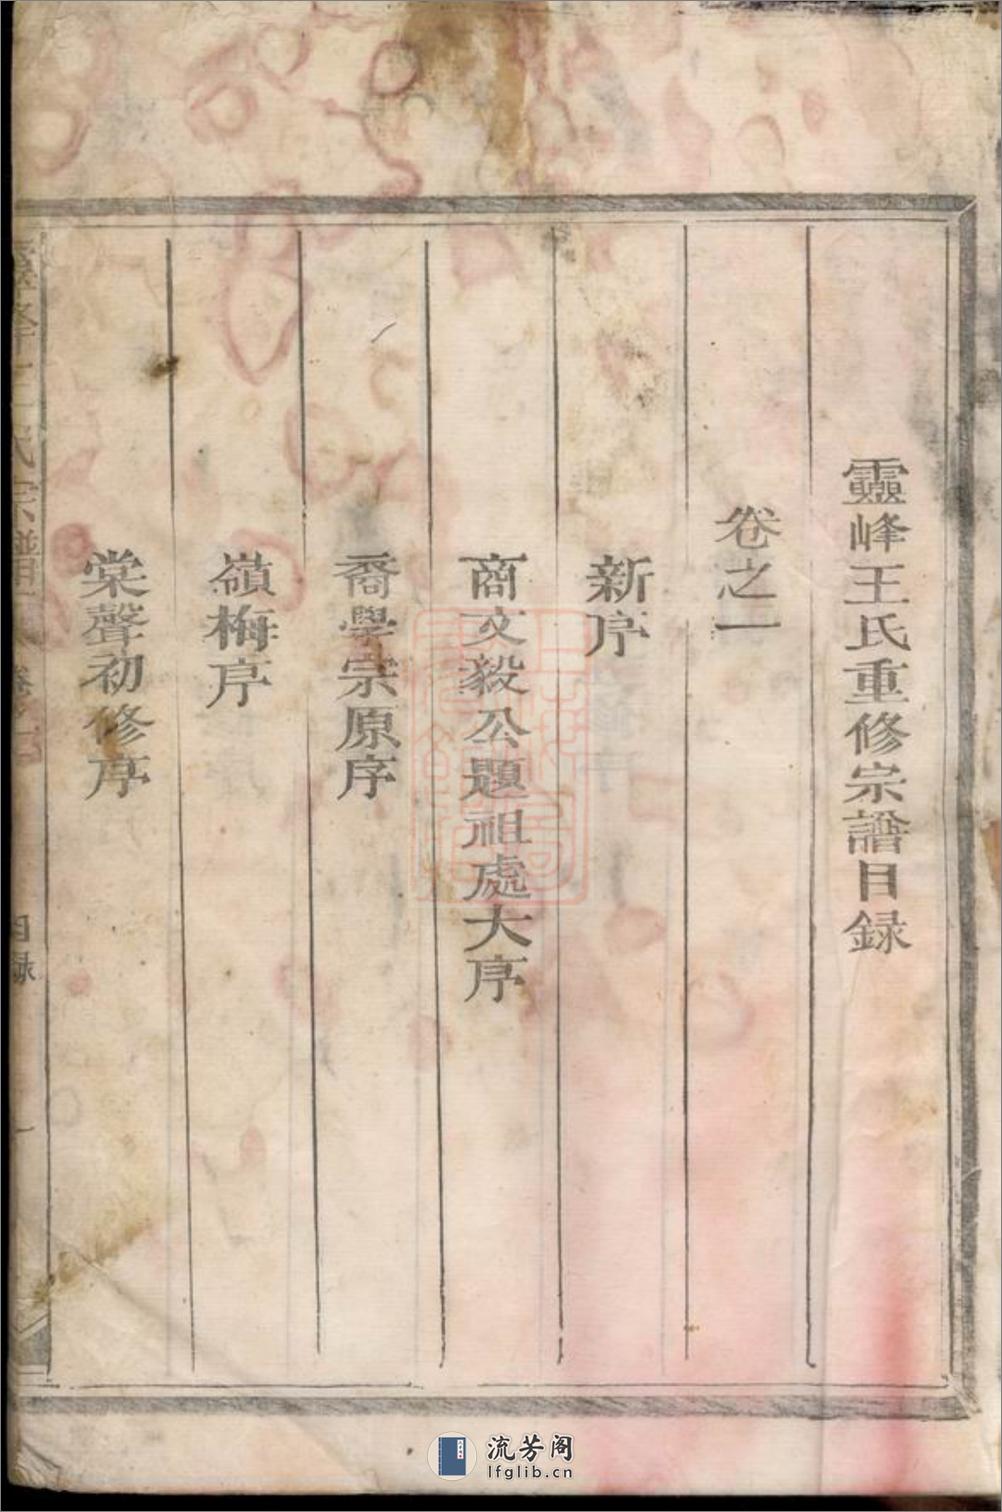 靈峰王氏重修宗譜目録
卷之一
新序
商文毅公題祖處大序
喬學宗原序
嶺梅序
棠聲初修序
目録
一
流芳阁
lfglib.cn